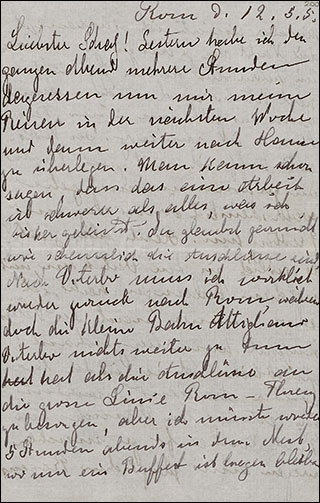 Rom d. 12. 5. 5.
Liebster Schatz! Gestern habe ich den
ganzen Abend mehrere Stunden
dagesessen um mir meine
Reisen in der nächsten Woche
und dann weiter nach Hause
zu überlegen. Man kann schon
sagen dass das eine Arbeit
ist schwerer als alles, was ich
bisher geleistet. Du glaubst garnicht
wie scheusslich die Anschlüsse sind
Nach Viterbo muss ich wirklich
wieder zurück nach Rom,
doch die kleine Bahn Attigliano
Viterbo nichts weiter zu tun
hat als die Anschlüsse an
die grosse Linie Rom – Florenz
zu besorgen, aber ich müsste
5 Stunden abends in dem Nest,
wo nur ein Buffet ist liegen bleiben